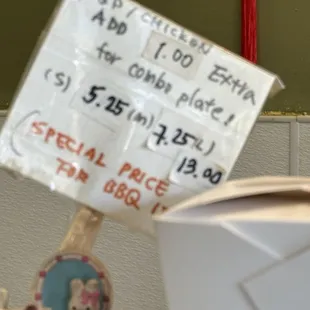 / CHICKEN
ADD 1.00 Extra
for combo plate!
(S) 5.25 (m) 7.25 (L)
13.00
(SPECIAL PRICE
FOR BBQ